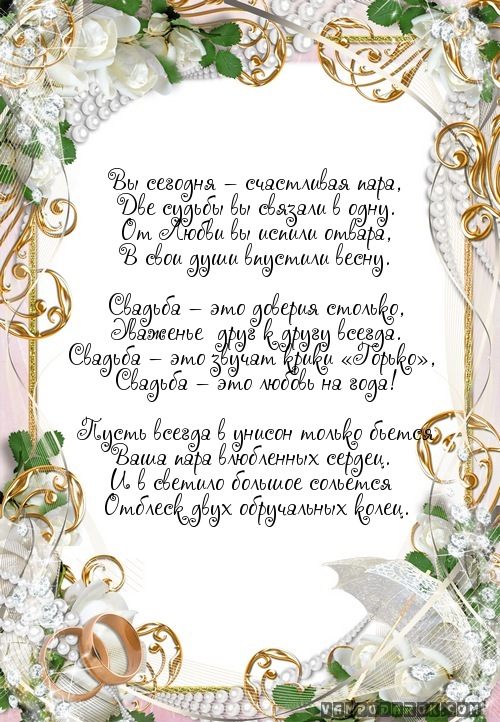 Вы сегодня – счастливая пара,
Две судьбы вы связали в одну.
От Любви вы испили отвара,
В свои души впустили весну.
Свадьба – это доверия столько,
Уваженье друг к другу всегда.
Свадьба – это звучат крики «Горько»,
Свадьба – это любовь на года!
Пусть всегда в унисон только бьется
Ваша пара влюбленных сердец.
И в светило большое сольется
Отблеск двух обручальных колец.
VAMPODAROK.COM